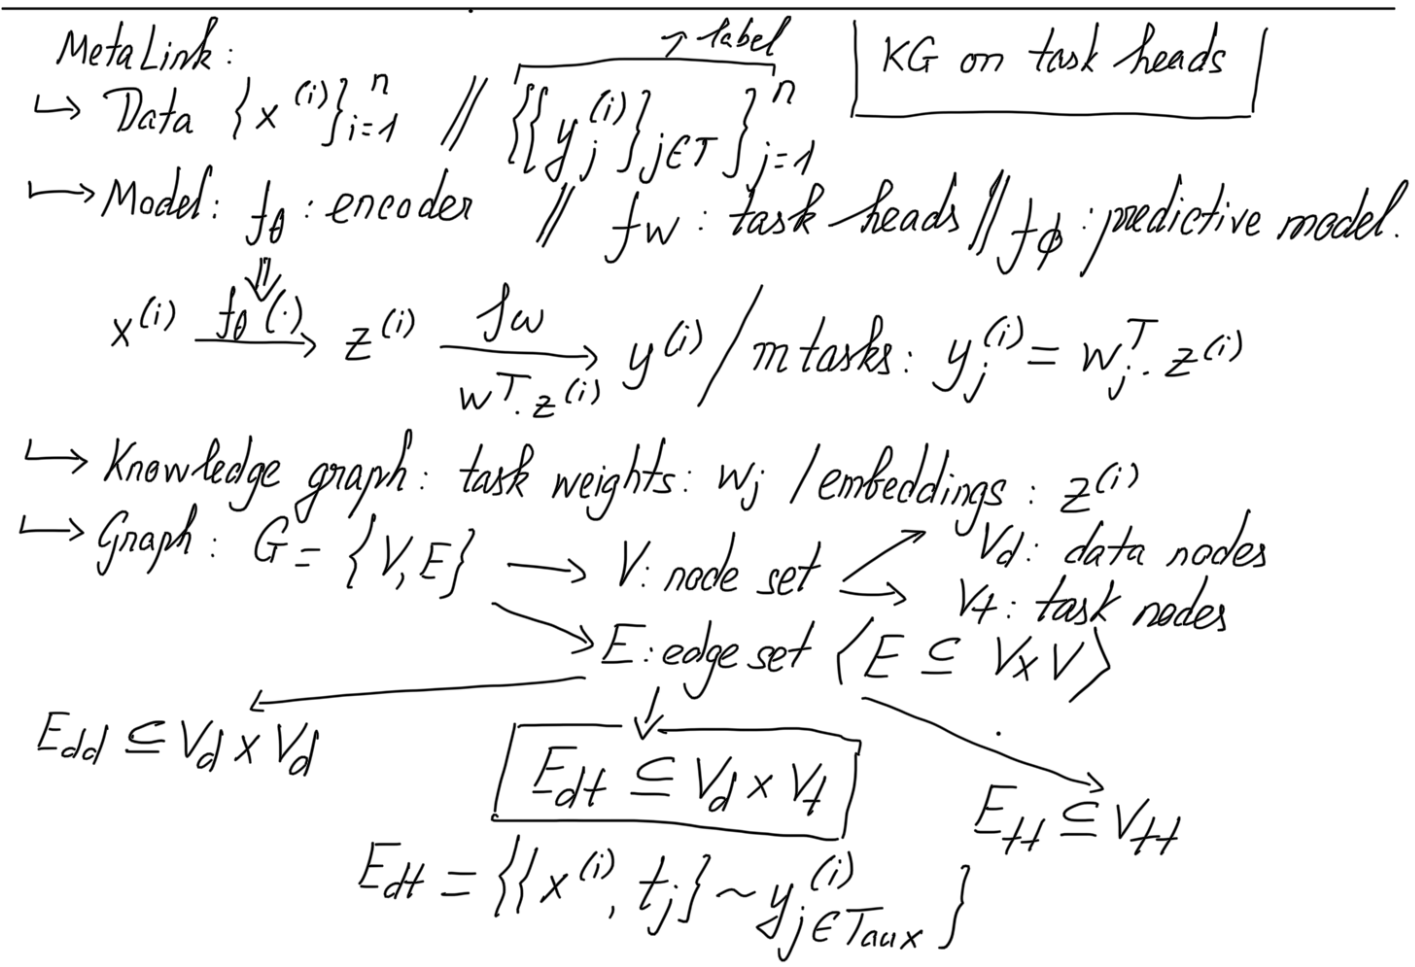 MetaLink:
→ label
KG on task heads
↳ Data {x^(i)}_{i=1}^n // {{y_j^(i)}_{j∈T}}_{j=1}^n
↳ Model: f_θ : encoder // f_w : task heads // f_ϕ : predictive model.
x^(i) —f_θ(·)→ z^(i) —f_w / w^T. z^(i)→ y^(i) / m tasks: y_j^(i) = w_j^T. z^(i)
↳ Knowledge graph: task weights: w_j / embeddings : z^(i)
↳ Graph: G = {V, E} → V: node set
V_d: data nodes
V_t: task nodes
E: edge set ⟨E ⊆ V x V⟩
E_dd ⊆ V_d x V_d
E_dt ⊆ V_d x V_t
E_tt ⊆ V_tt
E_dt = {{x^(i), t_j} ~ y_{j∈Taux}^(i)}